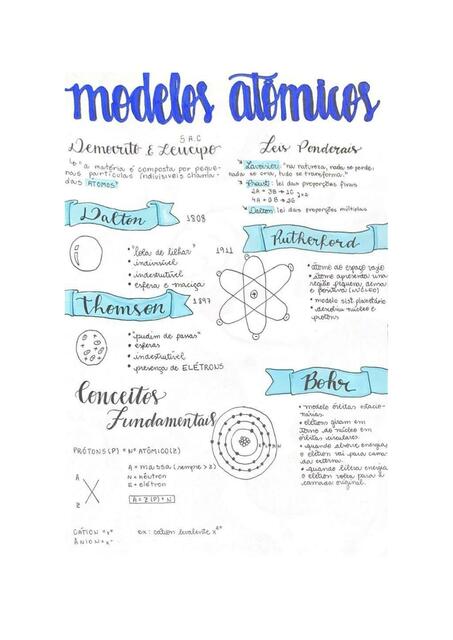 modelos atômicos
5 A.C
Demócrito & Leucipo
"a matéria é composta por peque-
nas partículas indivisíveis chama-
das ATOMOS"
Leis Ponderais
Lavoisier: "na natureza, nada se perde,
nada se cria, tudo se transforma."
Proust: lei das proporções fixas
2A = 3B → 1C
4A = 6B → 2C
Dalton: lei das proporções múltiplas
Dalton 1808
• "bola de bilhar"
• indivisível
• indestrutível
• esfera e maciça
Thomson 1897
• "pudim de passas"
• esferas
• indestrutível
• presença de ELÉTRONS
1911
Rutherford
• átomo de espaço vazio
• átomo apresenta uma
região pequena, densa
e positiva (NÚCLEO)
• modelo sist. planetário
• descobriu núcleo e
prótons
Bohr
• modelo órbitas estacio-
nárias
• elétrons giram em
torno do núcleo em
órbitas circulares.
• quando absorve energia,
o elétron vai para cama-
da externa.
• quando libera energia
o elétron volta para a
camada original.
Conceitos
Fundamentais
PRÓTONS (P) = Nº ATÔMICO (Z)
A = massa (sempre > Z)
N = nêutron
E = elétron
A = Z (P) + N
A
X
Z
CÁTION "x⁺"
ÂNION "x⁻"
ex: cátion bivalente x²⁺